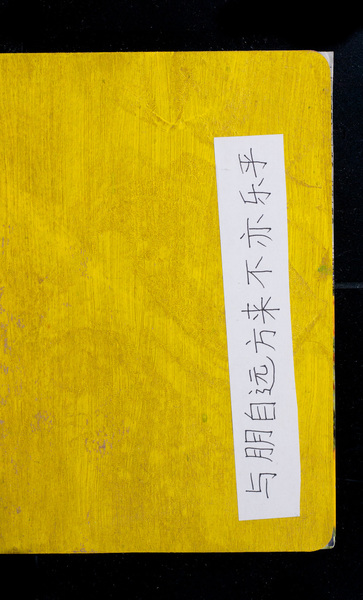 与朋自远方来不亦乐乎